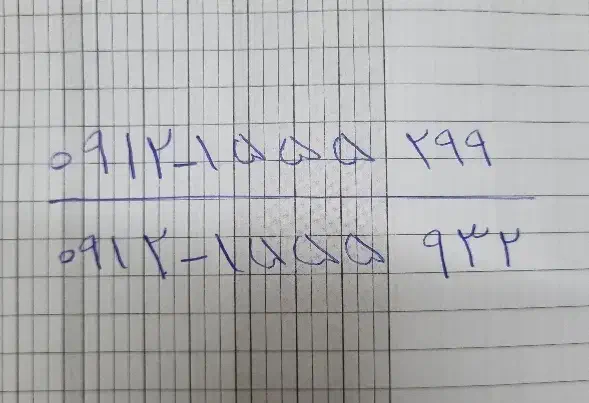 ۰۹۱۲-۱۵۵۵ ۲۹۹
۰۹۱۲-۱۵۵۵ ۹۳۲